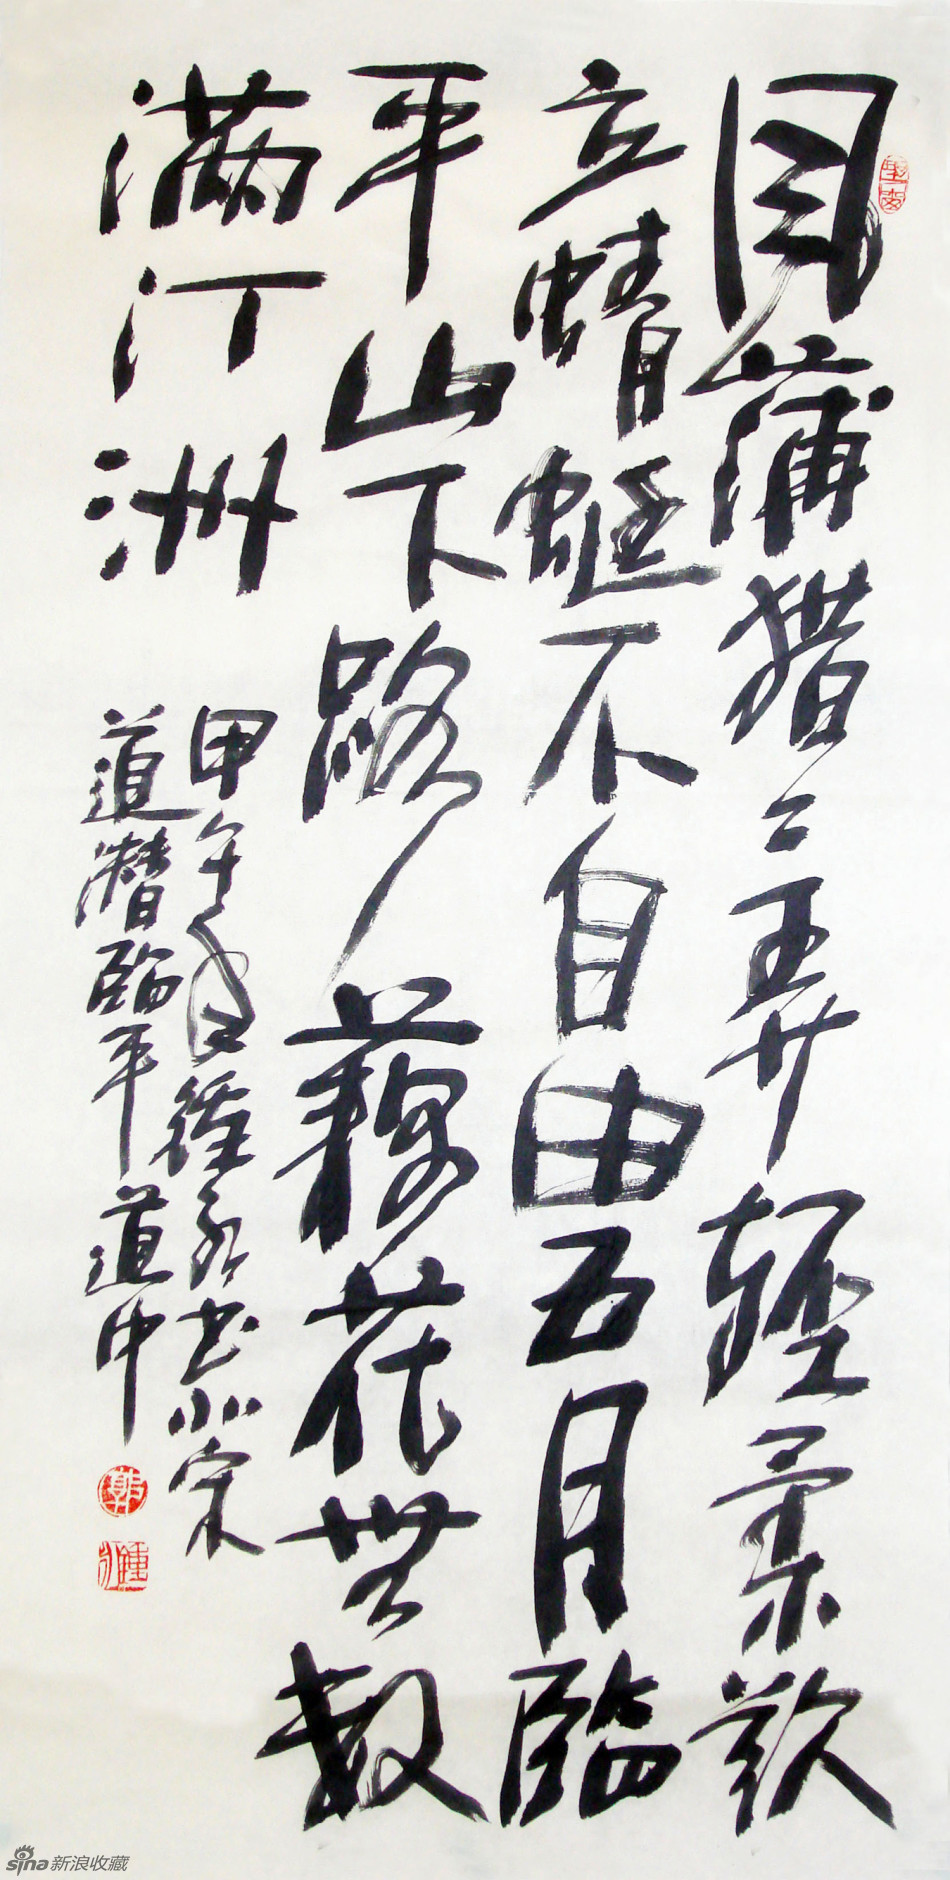 風蒲猎々弄輕柔欲
立蜻蜓不自由五月臨
平山下路藕花無数
满汀洲
甲午年 书北宋
道潜臨平道中
sina新浪收藏